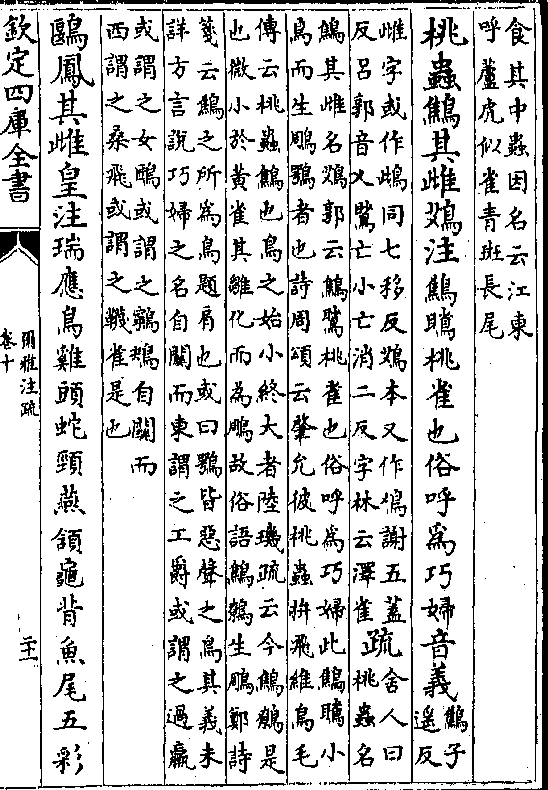 食其中蟲因名云江東
呼蘆虎似雀青斑長尾
桃蟲鷦其雌鴱注鷦䳟桃雀也俗呼為巧婦音義鷦子
遥反
雌字或作䳄同七移反鴱本又作䳖謝五蓋
反呂郭音乂䳟亡小亡消二反字林云澤雀
疏舍人曰
桃蟲名
鷦其雌名鴱郭云鷦䳟桃雀也俗呼為巧婦此鷦䳟小
鳥而生鵰鶚者也詩周頌云肇允彼桃蟲拚飛維鳥毛
傳云桃蟲鷦也鳥之始小終大者陸璣疏云今鷦鷯是
也微小於黃雀其雛化而為鵰故俗語鷦鷯生鵰鄭詩
箋云鷦之所為鳥題肩也或曰鶚皆惡聲之鳥其義未
詳方言說巧婦之名自關而東謂之工爵或謂之過鸁
或謂之女鴎或謂之鸋鴂自關而
西謂之桑飛或謂之韈雀是也
鶠鳳其雌皇注瑞應鳥雞頭蛇頸燕頷龜背魚尾五彩
欽定四庫全書
爾雅注疏
卷十
二十一